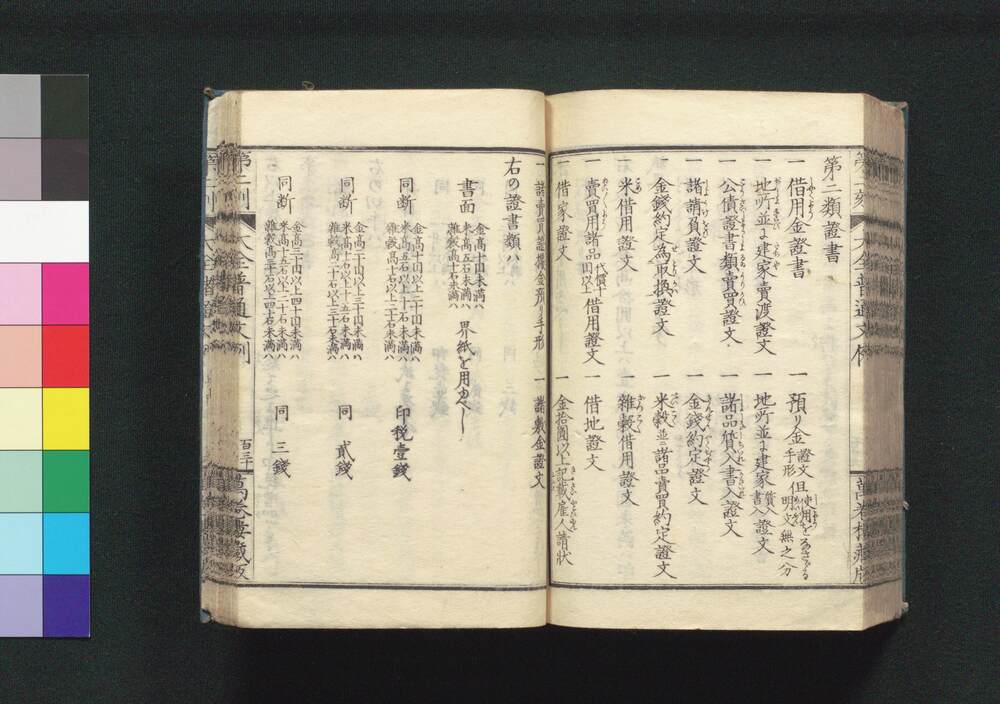 第二類證書
一 借用金證書
一 預り金 證文 手形 但 使用をなさゞる 明文無之分
一 地所並に建家賣渡證文
一 地所並に建家 質入 書入 證文
一 公債證書類賣買證文
一 諸品質入書入證文
一 諸請負證文
一 金錢約定證文
一 金錢約定為取換證文
一 米穀並ニ諸品賣買約定證文
一 米借用證文
一 雜穀借用證文
一 賣買用諸品 代價十圓以上 借用證文
一 借地證文
一 借家證文
一 金拾圓以上記載雇人請状
一 諸賣買證據金預り手形
一 諸敷金證文
右の證書類ハ
書面
金高十圓未滿ハ
米高五石未滿ハ
雜穀高十石未滿ハ
界紙を用ゆべし
同断
金高十圓以上二十圓未滿ハ
米高五石以上十石未滿ハ
雜穀高十石以上二十石未滿ハ
印税壹錢
同断
金高二十圓以上三十圓未滿ハ
米高十石以上十五石未滿ハ
雜穀高二十石以上三十石未滿ハ
同 貳錢
同断
金高三十圓以上四十圓未滿ハ
米高十五石以上二十石未滿ハ
雜穀高三十石以上四十石未滿ハ
同 三錢
大全普通文例
百三十
萬巻樓藏版